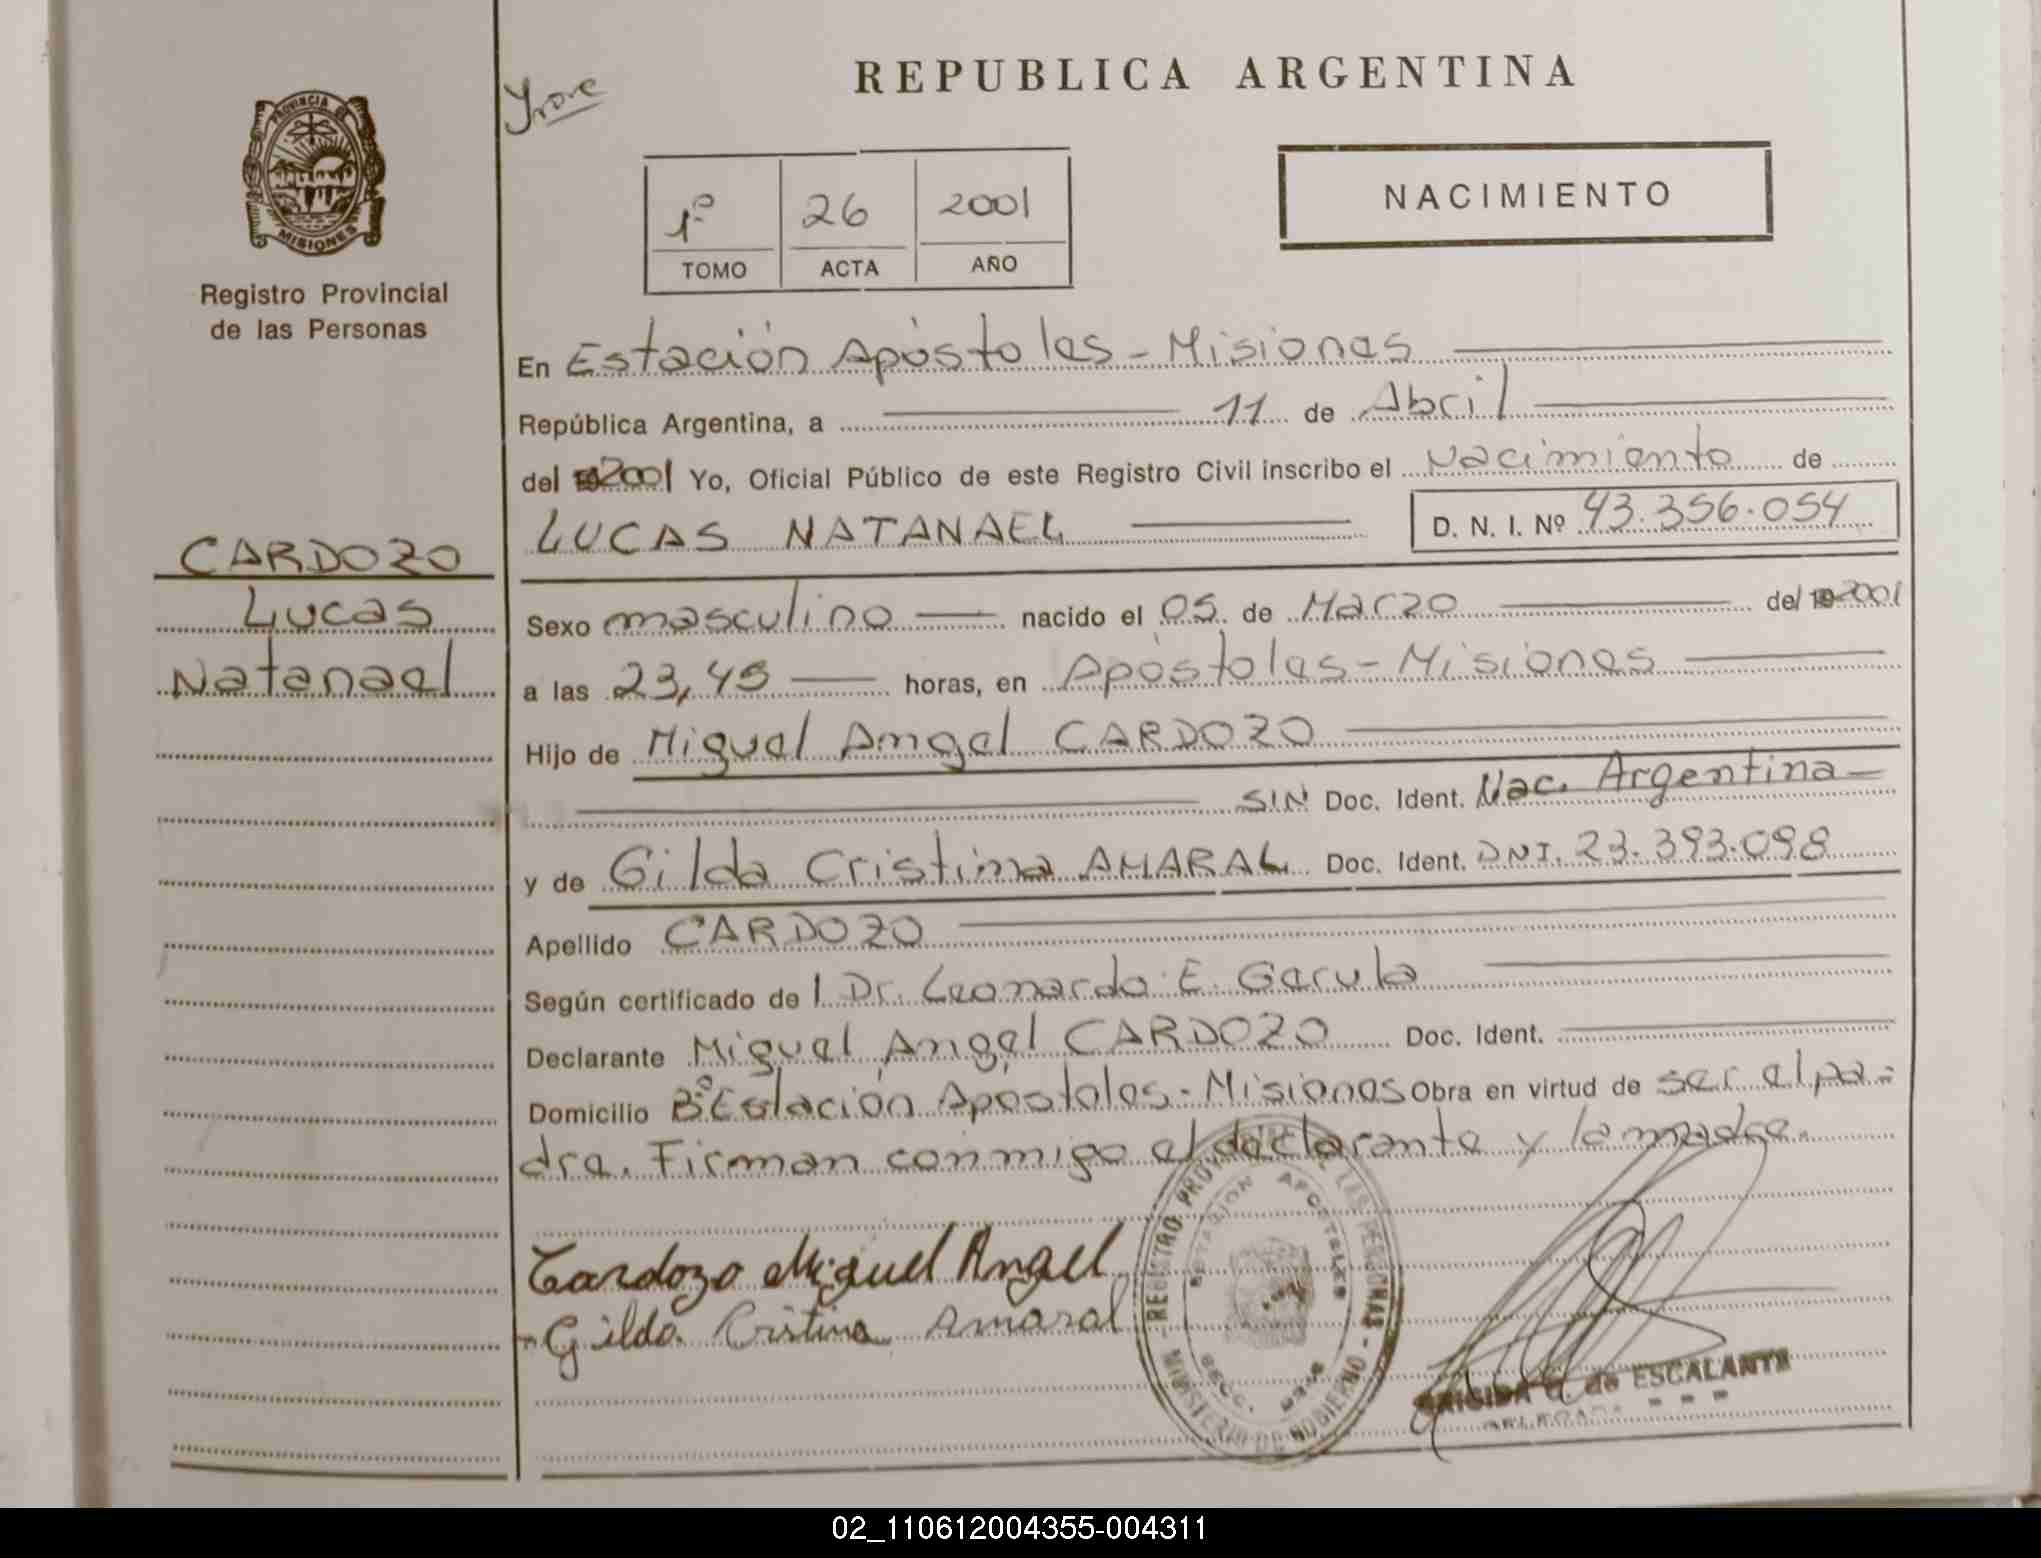 REPUBLICA ARGENTINA
PROVINCIA DE
MISIONES
Registro Provincial
de las Personas
1º 26 2001
TOMO ACTA AÑO
NACIMIENTO
En Estación Apóstoles - Misiones
República Argentina, a 11 de Abril
del 2001 Yo, Oficial Público de este Registro Civil inscribo el Nacimiento de
LUCAS NATANAEL D. N. I. Nº 43.356.054
CARDOZO
Lucas
Natanael
Sexo masculino nacido el 05 de Marzo del 2001
a las 23,45 horas, en Apóstoles - Misiones
Hijo de Miguel Angel CARDOZO
SIN Doc. Ident. Nac. Argentina
y de Gilda Cristina AMARAL Doc. Ident. DNI. 23.393.098
Apellido CARDOZO
Según certificado de l Dr. Leonardo E. Garula
Declarante Miguel Angel CARDOZO Doc. Ident.
Domicilio Bº Estación Apostoles - Misiones Obra en virtud de ser el pa-
dre. Firman conmigo el declarante y la madre.
Cardozo Miguel Angel
Gilda Cristina Amaral
REGISTRO PROVINCIAL DE LAS PERSONAS - MINISTERIO DE GOBIERNO -
ESTACION APOSTOLES
SECC.
BRIGIDA G. de ESCALANTE
DELEGADA
02_110612004355-004311